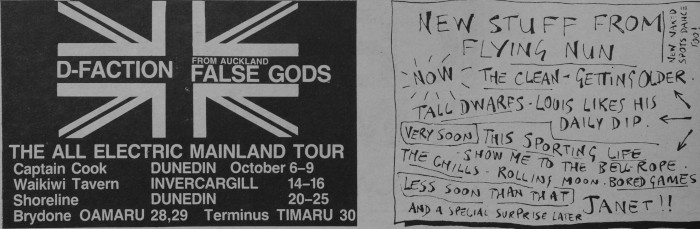 D-FACTION
FROM AUCKLAND
FALSE GODS
THE ALL ELECTRIC MAINLAND TOUR
Captain Cook DUNEDIN October 6-9
Waikiwi Tavern INVERCARGILL 14-16
Shoreline DUNEDIN 20-25
Brydone OAMARU 28,29 Terminus TIMARU 30
NEW STUFF FROM
FLYING NUN
NOW THE CLEAN - GETTING OLDER.
TALL DWARFS - LOUIS LIKES HIS
DAILY DIP.
VERY SOON THIS SPORTING LIFE
SHOW ME TO THE BELL ROPE.
THE CHILLS - ROLLING MOON - BORED GAMES
LESS SOON THAN THAT
AND A SPECIAL SURPRISE LATER JANET!!
SPOTS DANCE